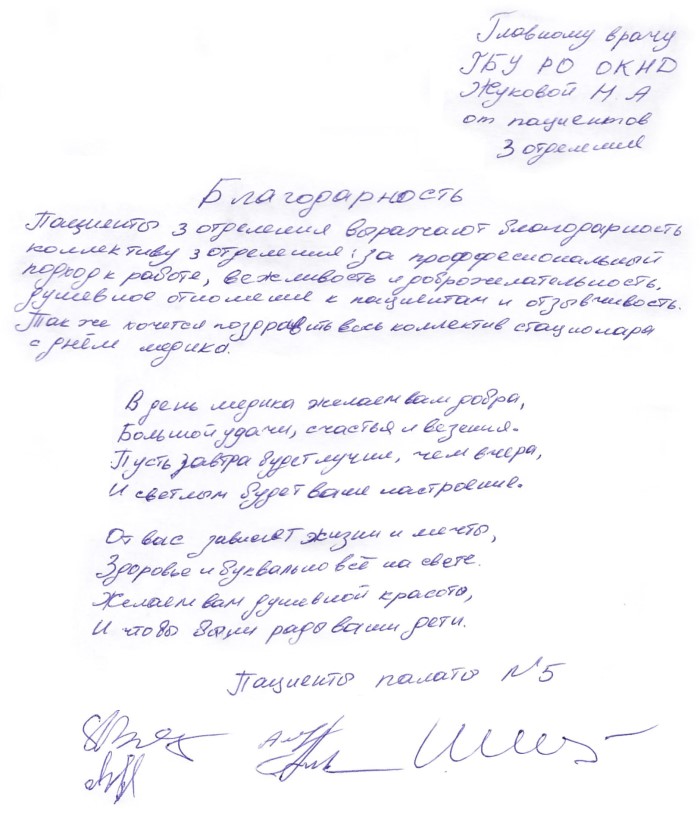 Главному врачу
ГБУ РО ОКНД
Жуковой Н.А
от пациентов
3 отделения
Благодарность
Пациенты 3 отделения выражают благодарность
коллективу 3 отделения: за проффессиональный
подход к работе, вежливость и доброжелательность,
душевное отношение к пациентам и отзывчивость.
Так же хочется поздравить весь коллектив стационара
с днём медика.
В день медика желаем вам добра,
Большой удачи, счастья и везения.
Пусть завтра будет лучше, чем вчера,
И светлым будет ваше настроение.
От вас зависят жизни и мечты,
Здоровье и буквально всё на свете.
Желаем вам душевной красоты,
И чтобы были рады ваши дети.
Пациенты палаты №5